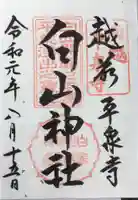 越前 平泉寺
白山神社
令和元年八月十五日